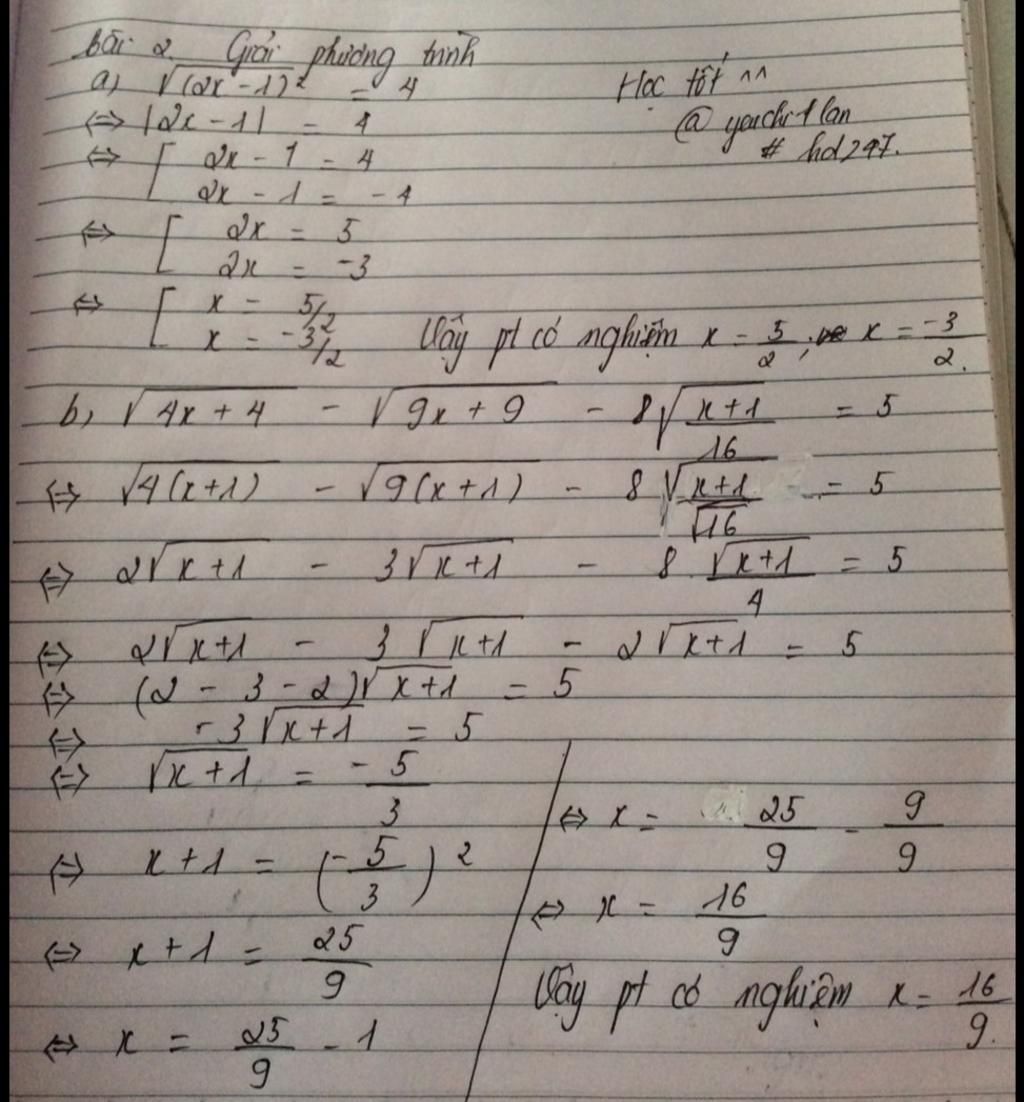 bài 2. Giải phương trình
a) √(2x - 1)² = 4
Học tốt ^^
⇔ |2x - 1| = 4
@ yenchi1lan
⇔ [ 2x - 1 = 4
# hd247.
2x - 1 = -4
⇔ [ 2x = 5
2x = -3
⇔ [ x = 5/2
x = -3/2 Vậy pt có nghiệm x = 5/2; x = -3/2.
b, √(4x + 4) - √(9x + 9) - 8√((x+1)/16) = 5
⇔ √(4(x+1)) - √(9(x+1)) - 8 √(x+1)/√16 = 5
⇔ 2√(x+1) - 3√(x+1) - 8. √(x+1)/4 = 5
⇔ 2√(x+1) - 3√(x+1) - 2√(x+1) = 5
⇔ (2 - 3 - 2)√(x+1) = 5
⇔ -3√(x+1) = 5
⇔ √(x+1) = -5/3
⇔ x + 1 = (-5/3)²
⇔ x + 1 = 25/9
⇔ x = 25/9 - 1
⇔ x = 25/9 - 9/9
⇔ x = 16/9
Vậy pt có nghiệm x = 16/9.